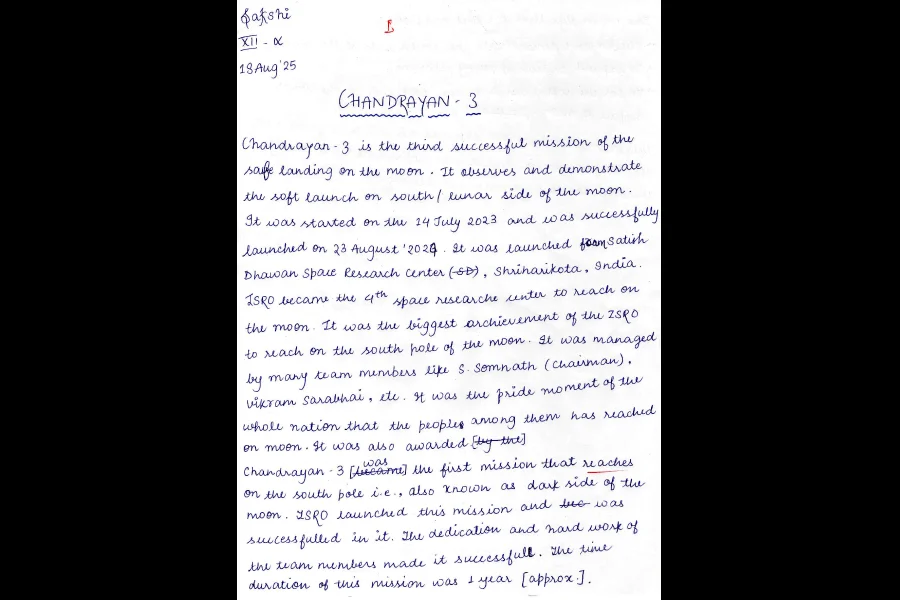 Sakshi
XII - α
18 Aug '25
CHANDRAYAN - 3
Chandrayan - 3 is the third successful mission of the
safe landing on the moon. It observes and demonstrate
the soft launch on south / lunar side of the moon.
It was started on the 14 July 2023 and was successfully
launched on 23 August '2024. It was launched from Satish
Dhawan Space Research Center (SD), Shriharikota, India.
ISRO became the 4th space researche center to reach on
the moon. It was the biggest archievement of the ISRO
to reach on the south pole of the moon. It was managed
by many team members like S. Somnath (Chairman),
Vikram Sarabhai, etc. It was the pride moment of the
whole nation that the people among them has reached
on moon. It was also awarded [by the]
Chandrayan - 3 [became] was the first mission that reaches
on the south pole i.e., also known as dark side of the
moon. ISRO launched this mission and bec was
successfulled in it. The dedication and hard work of
the team members made it successfull. The time
duration of this mission was 1 year [approx.].